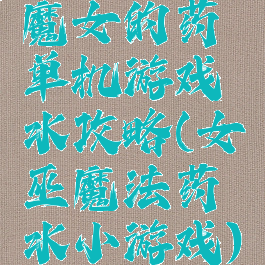 魔女的药
单机游戏
水攻略(女
巫魔法药
水小游戏)